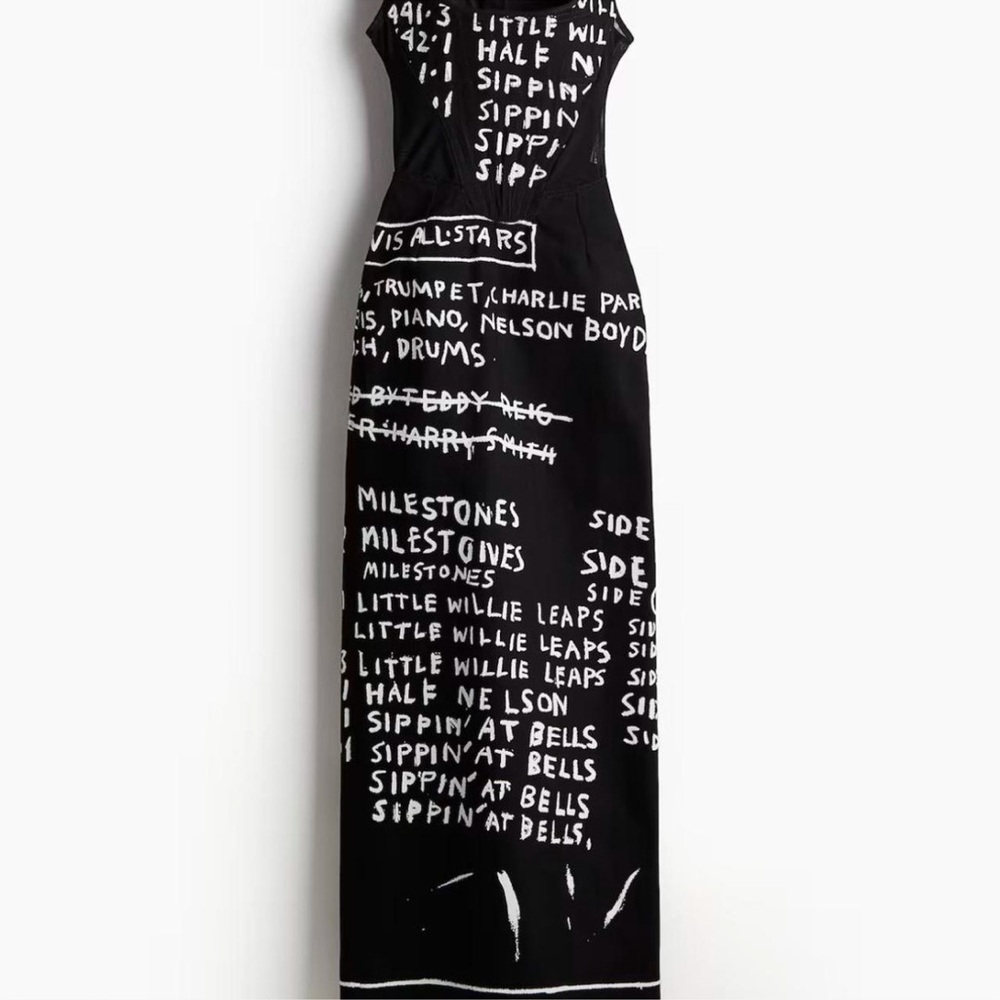 441.3 LITTLE WIL
42.1 HALF N
1.1 SIPPIN'
.1 SIPPIN
SIPPI
SIPP
VIS ALL.STARS
, TRUMPET, CHARLIE PAR
IS, PIANO, NELSON BOYD
CH, DRUMS.
D BY TEDDY REIG
ER: HARRY SMITH
MILESTONES SIDE
MILESTONES SIDE
MILESTONES SIDE
LITTLE WILLIE LEAPS SID
LITTLE WILLIE LEAPS SID
3 LITTLE WILLIE LEAPS SID
1 HALF NELSON SID
1 SIPPIN' AT BELLS SID
.1 SIPPIN' AT BELLS
SIPPIN' AT BELLS
SIPPIN' AT BELLS,